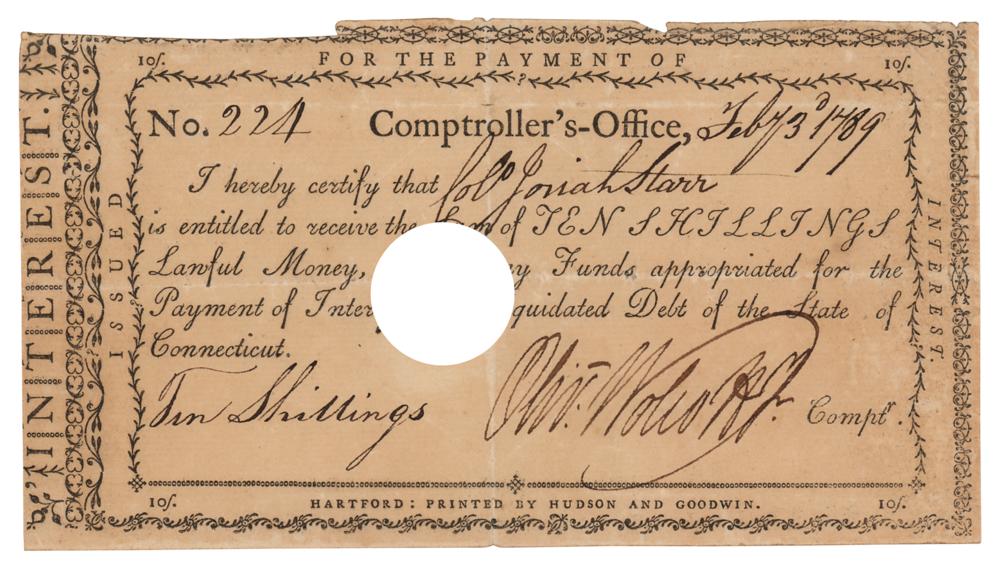 10ſ. FOR THE PAYMENT OF 10ſ.
INTEREST.
ISSUED
INTEREST.
No. 224 Comptroller's-Office, Feby 3d 1789
I hereby certify that Colo Josiah Starr
is entitled to receive the Sum of TEN SHILLINGS
Lawful Money, Funds appropriated for the
Payment of Debt of the State of
Connecticut.
Ten Shillings Olivr. Wolcott Jr. Comptr.
10ſ. HARTFORD: PRINTED BY HUDSON AND GOODWIN. 10ſ.